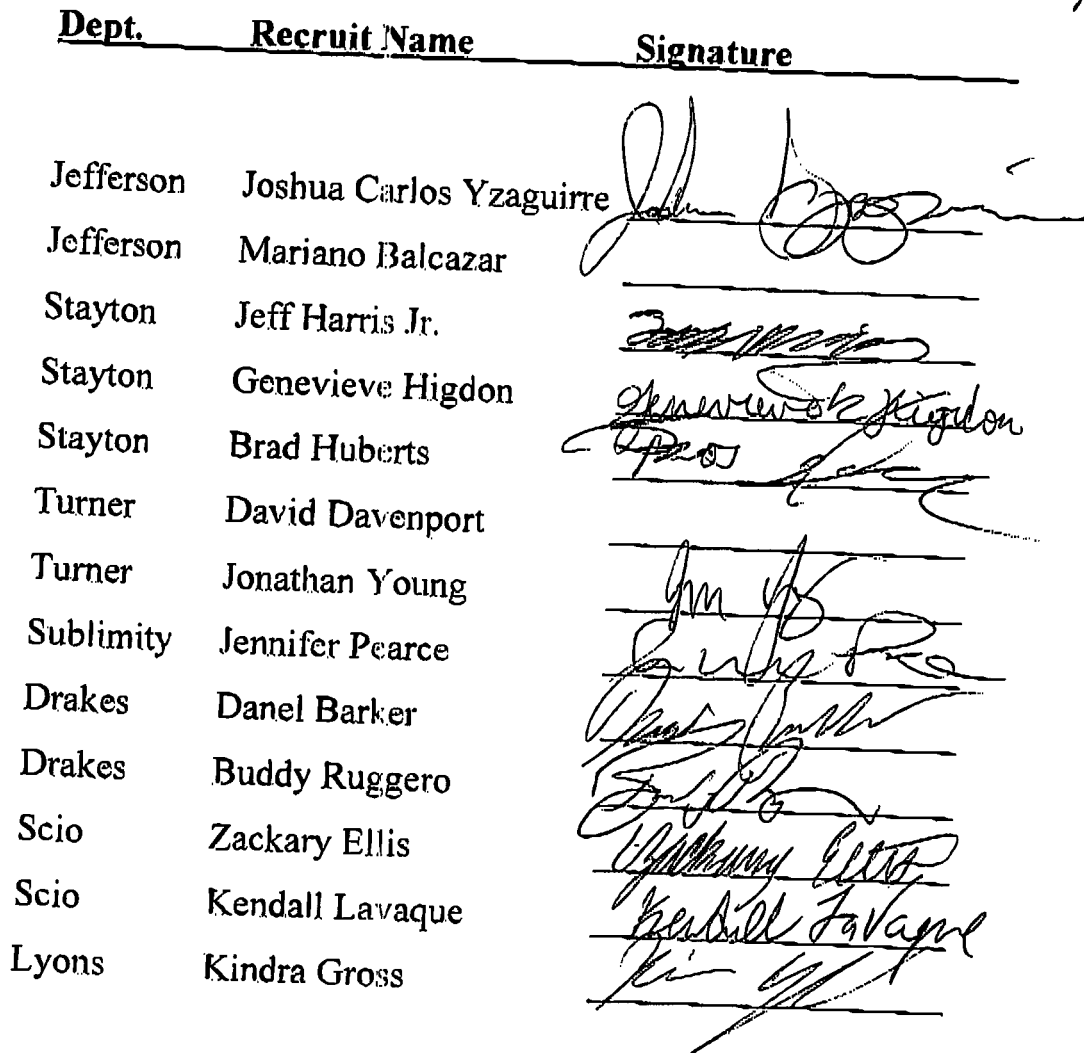 Dept. Recruit Name Signature
Jefferson Joshua Carlos Yzaguirre
Jefferson Mariano Balcazar
Stayton Jeff Harris Jr.
Stayton Genevieve Higdon Genevieve Higdon
Stayton Brad Huberts
Turner David Davenport
Turner Jonathan Young
Sublimity Jennifer Pearce
Drakes Danel Barker
Drakes Buddy Ruggero
Scio Zackary Ellis Zackary Ellis
Scio Kendall Lavaque Kendall LaVaque
Lyons Kindra Gross